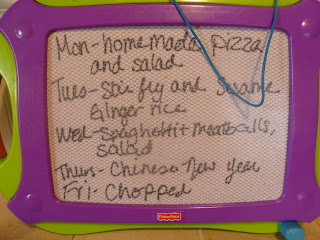 Mon-homemade pizza
and salad
Tues-Stir fry and Sesame
Ginger rice
Wed-Spaghetti + meatballs,
salad
Thurs-Chinese New Year
Fri-Chopped
Fisher-Price